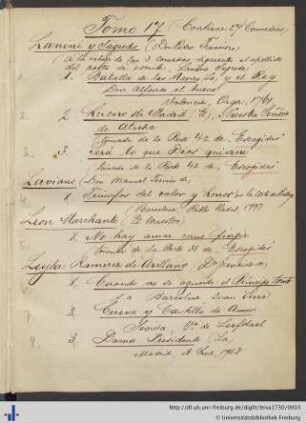 Tomo 17 (Contiene 27 Comedias)
Lanini y Sagredo (Don Pedro Francisco)
(A la cabeza de las 3 comedias, siguiendo el apellido
1. Batalla de las Navas, La, y el Rey
Don Alfonso el bueno
Valencia, Orga, 1761
2. 2. Lucero de Madrid, El, Nuestra Señora
de Atocha
tomada de la Parte 42 de Escogidas
3. 3. Será lo que Dios quisiere
tomada de la Parte 42 de Escogidas
Laviano (Don Manuel Fermin de)
1. Triunfos del valor y honor en la corte de Rodrigo
Barcelona, Pablo Nadal, 1797
Leon Marchante (El Maestro)
1. No hay amar como fingir
tomada de la Parte 33 de Escogidas
Leyba Ramirez de Arellano (Don Francisco de)
1. Cuando no se aguarda y Principe tonto
Barcelona Juan Serra
2. Cueva y Castillo de Amor
Sevilla, Vda. de Leefdael
3. Dama Presidente (La)
Madrid, A. Sanz, 1762
http://dl.ub.uni-freiburg.de/diglit/leiva1730/0603
© Universitätsbibliothek Freiburg